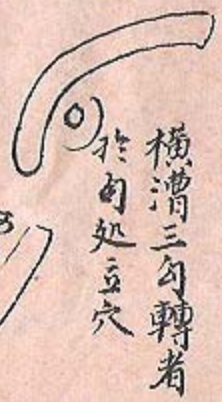 橫漕三勾轉者
於勾処立穴